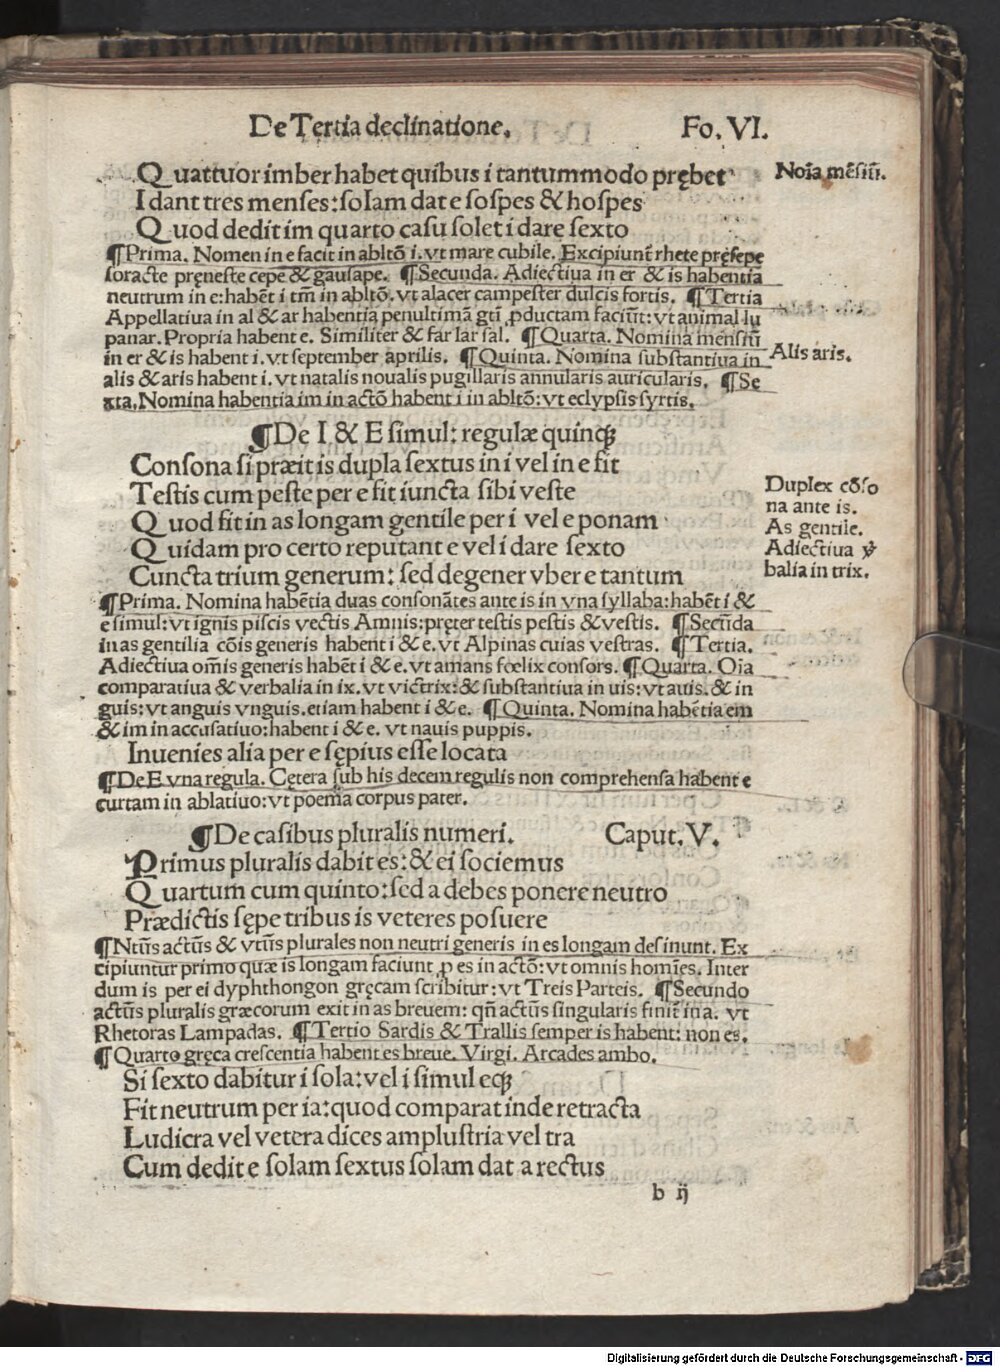 De Tertia declinatione. Fo. VI.
Quattuor imber habet quibus i tantummodo prębet
Noīa mēsiū.
I dant tres menses: solam dat e sospes & hospes
Quod dedit im quarto casu solet i dare sexto
¶Prima. Nomen in e facit in abltō i. vt mare cubile. Excipiunt̃ rhete pręsepe
soracte pręneste cepe & gausape. ¶Secunda. Adiectiua in er & is habentia
neutrum in e: habēt i tm̄ in abltō. vt alacer campester dulcis fortis. ¶Tertia
Appellatiua in al & ar habentia penultimā gtī ꝓductam faciūt: vt animal lu
panar. Propria habent e. Similiter & far lar sal. ¶Quarta. Nomina mensiū
in er & is habent i. vt september aprilis. ¶Quinta. Nomina substantiua in
Alis aris.
alis & aris habent i. vt natalis noualis pugillaris annularis auricularis. ¶Se
xta. Nomina habentia im in actō habent i in abltō: vt eclypsis syrtis.
¶De I & E simul: regulæ quinqꝫ
Consona si præit is dupla sextus in i vel in e fit
Testis cum peste per e fit iuncta sibi veste
Duplex cōso
na ante is.
Quod fit in as longam gentile per i vel e ponam
As gentile.
Quidam pro certo reputant e vel i dare sexto
Adiectiua ṽ
balia in trix.
Cuncta trium generum: sed degener vber e tantum
¶Prima. Nomina habētia duas consonātes ante is in vna syllaba: habēt i &
e simul: vt ignis piscis vectis Amnis: pręter testis pestis & vestis. ¶Secūda
in as gentilia cōis generis habent i & e. vt Alpinas cuias vestras. ¶Tertia.
Adiectiua om̄is generis habēt i & e. vt amans fœlix consors. ¶Quarta. Oīa
comparatiua & verbalia in ix. vt victrix: & substantiua in uis: vt auis. & in
guis: vt anguis vnguis. etiam habent i & e. ¶Quinta. Nomina habētia em
& im in accusatiuo: habent i & e. vt nauis puppis.
Inuenies alia per e sępius esse locata
¶De E vna regula. Cętera sub his decem regulis non comprehensa habent e
curtam in ablatiuo: vt poema corpus pater.
¶De casibus pluralis numeri. Caput. V.
Primus pluralis dabit es: & ei sociemus
Quartum cum quinto: sed a debes ponere neutro
Prædictis sępe tribus is veteres posuere
¶Ntūs actūs & vtūs plurales non neutri generis in es longam desinunt. Ex
cipiuntur primo quæ is longam faciunt ꝓ es in actō: vt omnis homīes. Inter
dum is per ei dyphthongon gręcam scribitur: vt Treis Parteis. ¶Secundo
actūs pluralis græcorum exit in as breuem: qn̄ actūs singularis finit̃ in a. vt
Rhetoras Lampadas. ¶Tertio Sardis & Trallis semper is habent: non es.
¶Quarto gręca crescentia habent es breue. Virgi. Arcades ambo.
Si sexto dabitur i sola: vel i simul eqꝫ
Fit neutrum per ia: quod comparat inde retracta
Ludicra vel vetera dices amplustria vel tra
Cum dedit e solam sextus solam dat a rectus
b ij
Digitalisierung gefördert durch die Deutsche Forschungsgemeinschaft - DFG